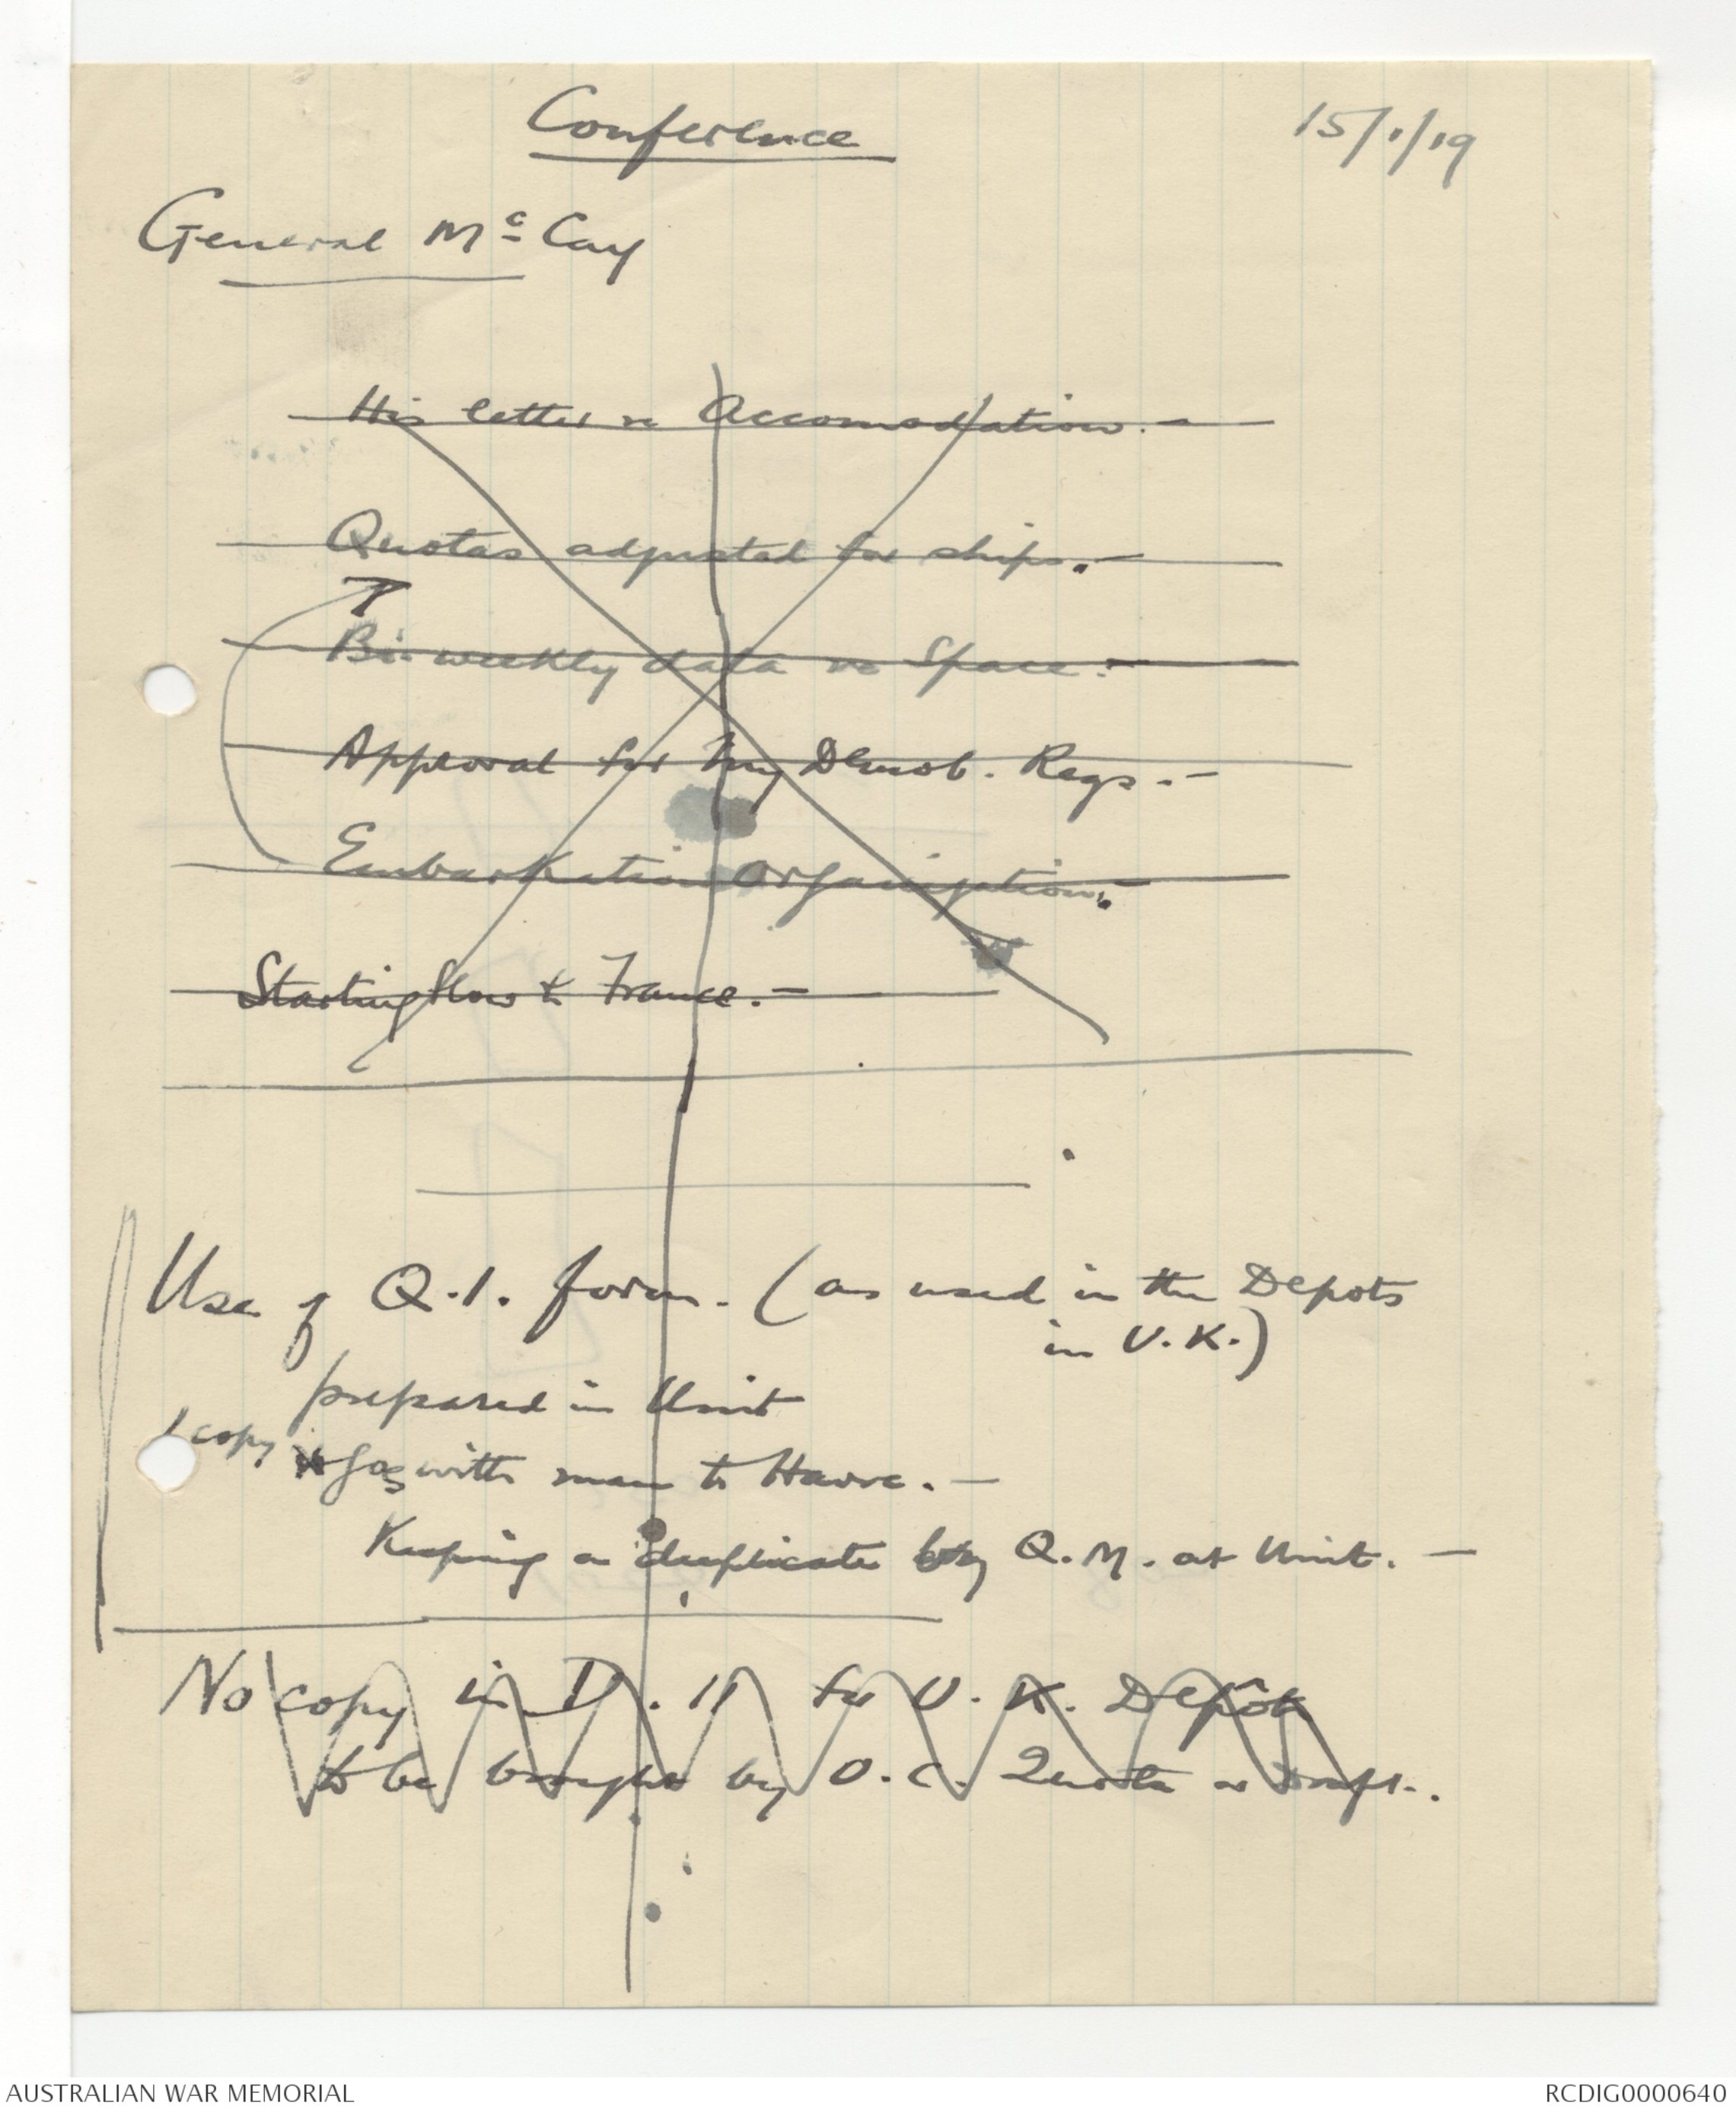 Conference
15/1/19
General Mc Cay
His letter re Accomodation. -
Quotas adjusted for ships. -
Bi-weekly data re Space. -
Approval for my Demob. Regs. -
Embarkation Organization. -
Starting flow to France. -
Use of Q.1. form. (as used in the Depots
in U.K.)
prepared in Unit
1 copy goes with man to Havre. -
Keeping a duplicate by Q.M. at Unit. -
No copy in D. 11 for U.K. Depôt
to be brought by O.C. Quota or Draft.
AUSTRALIAN WAR MEMORIAL
RCDIG0000640